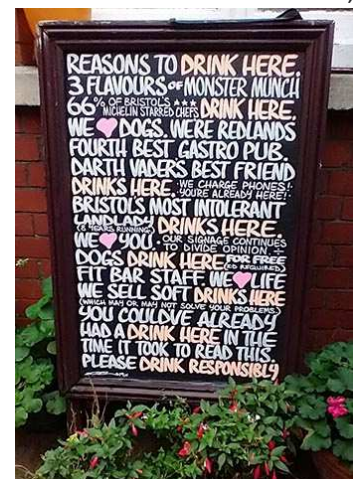 REASONS TO DRINK HERE.
3 FLAVOURS OF MONSTER MUNCH
66% OF BRISTOL'S MICHELIN STARRED CHEFS DRINK HERE.
WE ♥ DOGS. WERE REDLANDS
FOURTH BEST GASTRO PUB.
DARTH VADER'S BEST FRIEND
DRINKS HERE. WE CHARGE PHONES! YOURE ALREADY HERE!
BRISTOL'S MOST INTOLERANT
LANDLADY (8 YEARS RUNNING) DRINKS HERE.
WE ♥ YOU. OUR SIGNAGE CONTINUES TO DIVIDE OPINION
DOGS DRINK HERE FOR FREE (REQUIRED)
FIT BAR STAFF. WE ♥ LIFE
WE SELL SOFT DRINKS HERE
(WHICH MAY OR MAY NOT SOLVE YOUR PROBLEMS)
YOU COULD'VE ALREADY
HAD A DRINK HERE IN THE
TIME IT TOOK TO READ THIS.
PLEASE DRINK RESPONSIBLY